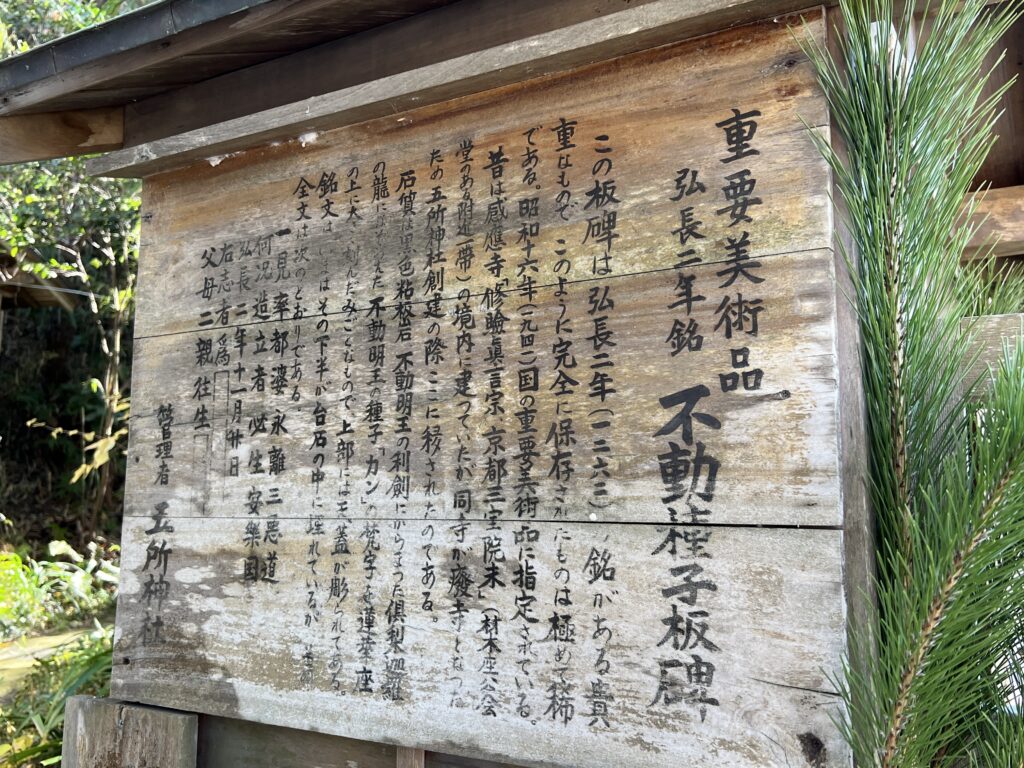 重要美術品
弘長二年銘 不動種子板碑
この板碑は弘長二年(一二六二 銘がある貴
重なもので このように完全に保存されたものは極めて稀
である。昭和十六年(一九四一)国の重要美術品に指定されている。
昔は感應寺「修驗眞言宗 京都三宝院末」(材木座公会
堂のある附近一帶)の境内に建つていたが同寺が癈寺となつた
ため 五所神社創建の際 ここに移されたのである。
石質は黒色粘板岩 不動明王の利劍にからまつた倶梨迦羅
の龍に 不動明王の種子「カン」の梵字を蓮華座
の上に大 刻んだみごとなもので 上部には天蓋が彫られてある。
銘文は その下半が台石の中に埋れているが
全文は 次のとおりである。
一見率都婆永離三悪道
何況造立者必生安樂国
弘長二年十一月廿日
右志者爲
父母二親往生
管理者 五所神社